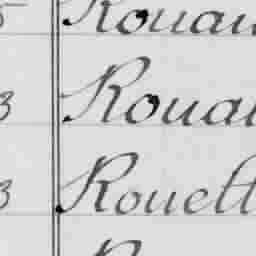 5 Rouau
3 Roual
3 Rouett